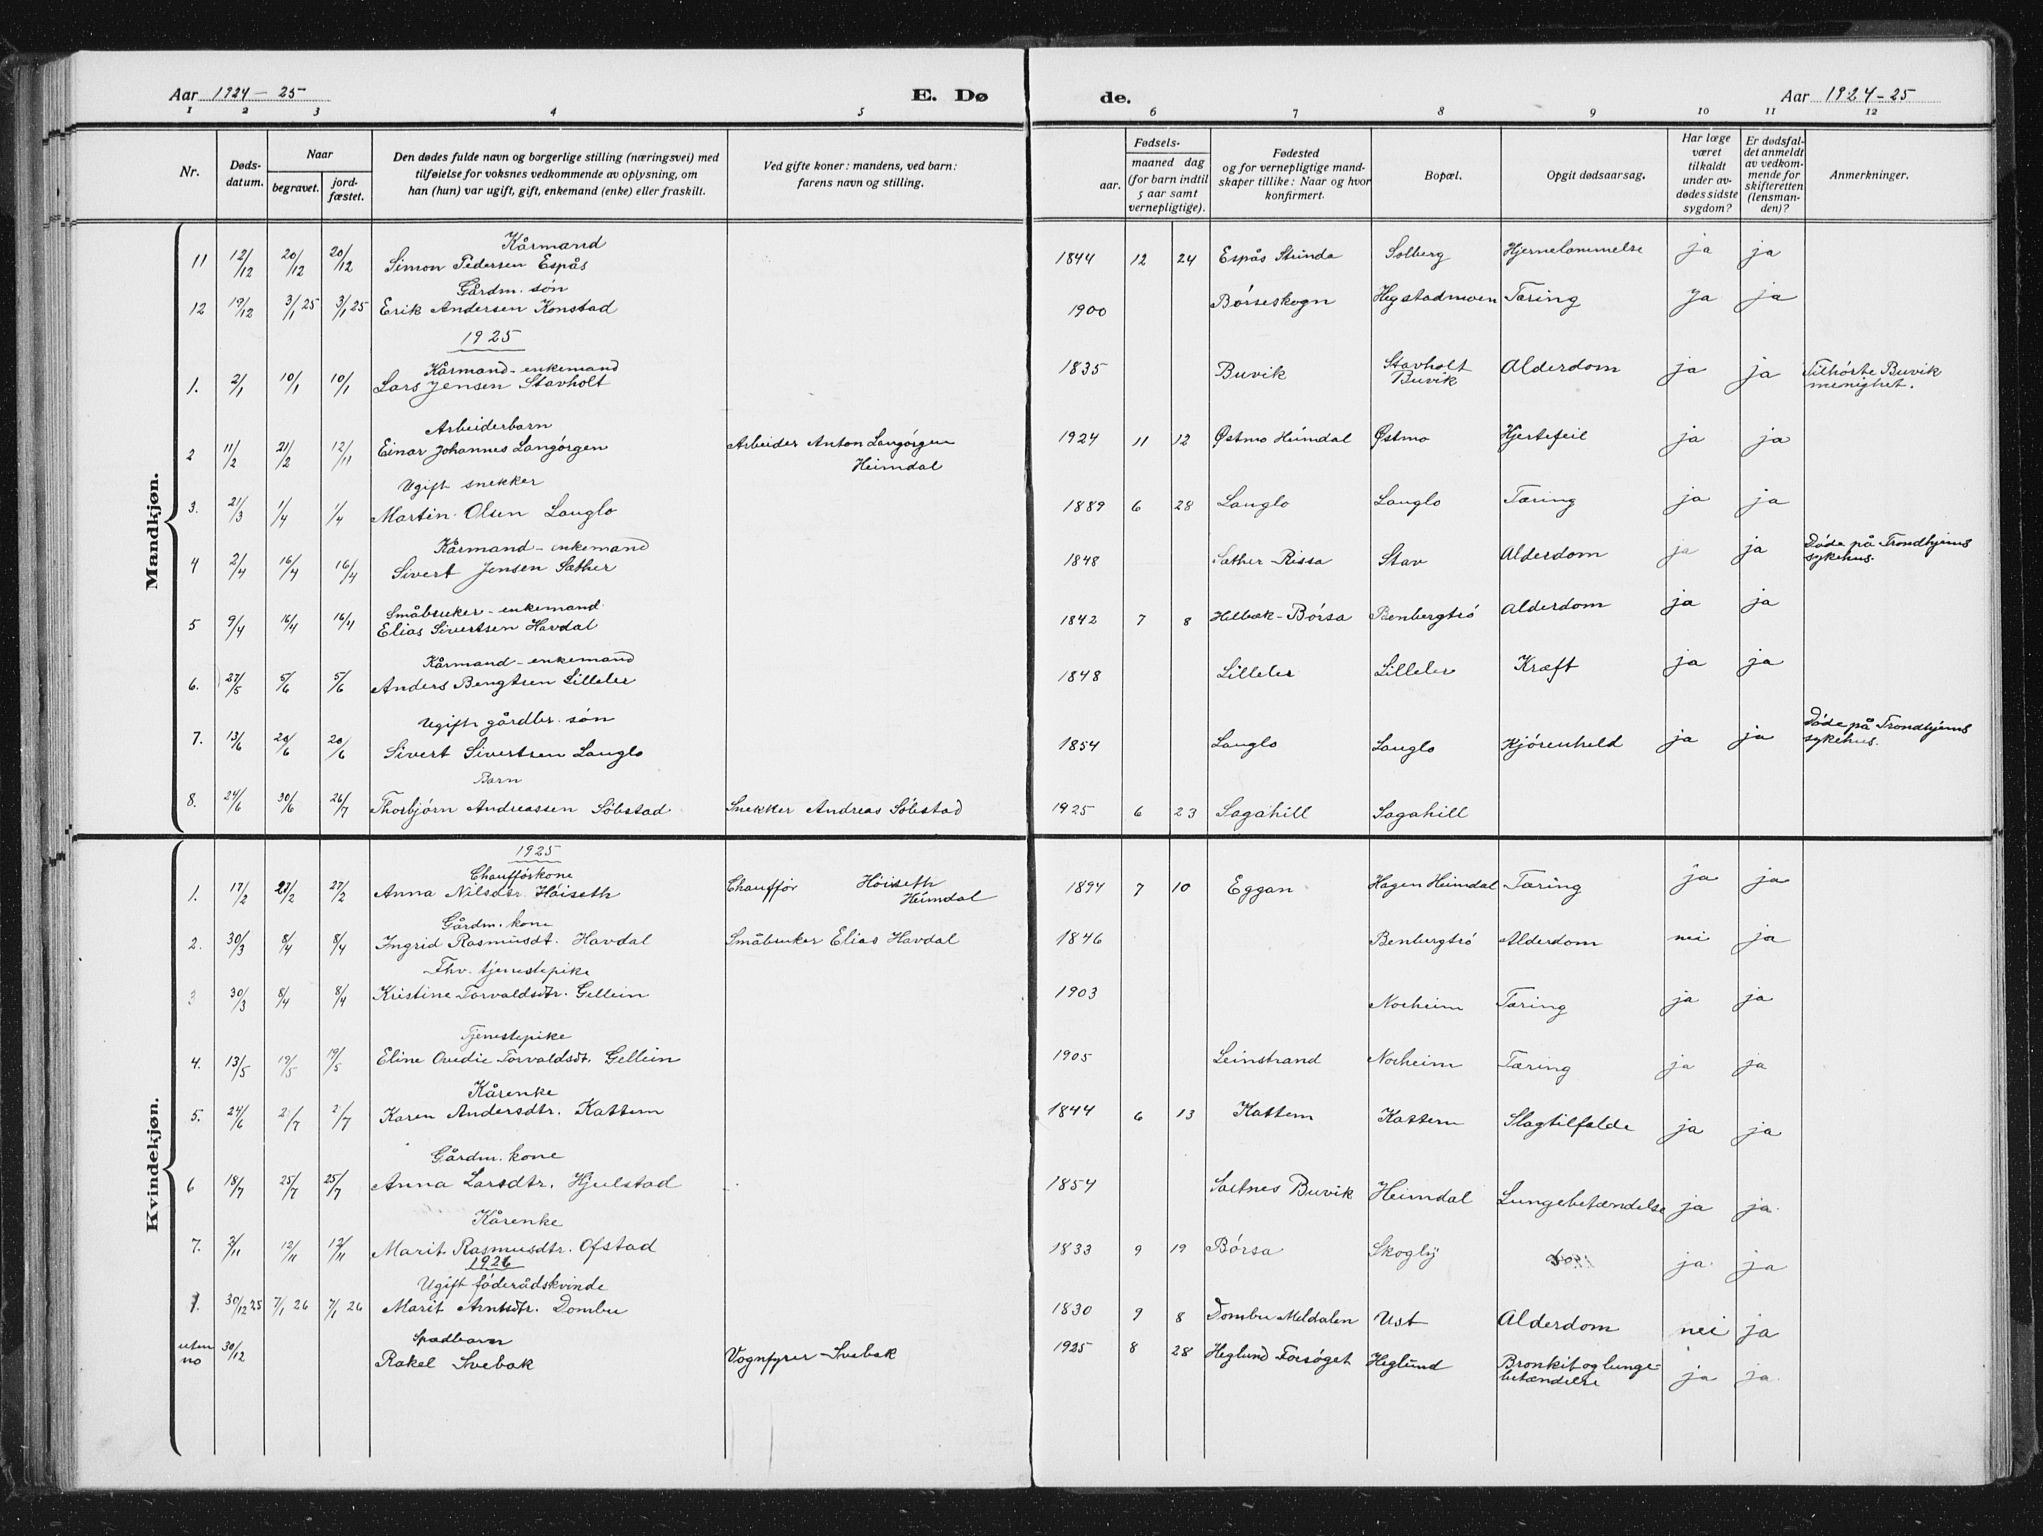 Aar 1924-25
E. Dø
de.
Aar 1924-25
1 2 3 4 5 6 7 8 9 10 11 12
Nr.
Døds-
datum.
Naar
begravet.
jord-
fæstet.
Den dødes fulde navn og borgerlige stilling (næringsvei) med
tilføielse for voksnes vedkommende av oplysning, om
han (hun) var ugift, gift, enkemand (enke) eller fraskilt.
Ved gifte koner: mandens, ved barn:
farens navn og stilling.
Fødsels-
aar.
maaned dag
(for barn indtil
5 aar samt
vernepligtige).
Fødested
og for vernepligtige mand-
skaper tillike: Naar og hvor
konfirmert.
Bopæl.
Opgit dødsaarsag.
Har læge
været
tilkaldt
under av-
dødes sidste
sygdom?
Er dødsfal-
det anmeldt
av vedkom-
mende for
skifteretten
(lensman-
den)?
Anmerkninger.
Mandkjøn.
Kårmand
11 12/12 20/12 20/12 Simon Pedersen Espås 1844 12 24 Espås Stunda Solberg Hjernelammelse ja ja
Gårdm. søn
12 19/12 3/1 25 3/1 25 Erik Andersen Konstad 1900 Børseskogn Hegstadmoen Tæring Ja ja
1925
Kårmand - enkemand
1. 2/1 10/1 10/1 Lars Jensen Stavholt 1835 Buvik Stavholt Buvik Alderdom ja ja Tilhørte Buvik
menighet.
Arbeiderbarn
2 11/2 21/2 12/11 Einar Johannes Langørgen Arbeider Anton Langørgen
Heimdal 1924 11 12 Østmo Heimdal Østmo Hjertefeil ja ja
Ugift snekker
3. 21/3 1/4 1/4 Martin Olsen Lauglo 1889 6 28 Lauglo Lauglo Tæring ja ja
Kårmand - enkemand
4 2/4 16/4 16/4 Sivert Jensen Sæther 1848 Sæther - Rissa Stav Alderdom ja ja Døde på Trondhjems
sykehus.
Småbruker - enkemand.
5 9/4 16/4 16/4 Elias Sivertsen Havdal 1842 7 8 Hilbæk - Børsa Benbergtrø Alderdom ja ja
Kårmand - enkemand
6. 27/5 5/6 5/6 Anders Bengtsen Lilleler 1848 Lilleler Lilleler Kræft ja ja
Ugift gårdbr. søn
7. 13/6 20/6 20/6 Sivert Sivertsen Lauglo 1854 Lauglo Lauglo Kjørenheld ja ja Døde på Trondhjems
sykehus.
Barn
8. 24/6 30/6 26/7 Thorbjørn Andreassen Søbstad Snekker Andreas Søbstad 1925 6 23 Sagahill Sagahill
Kvindekjøn.
1925
Chaufførkone
1. 17/2 27/2 27/2 Anna Nilsdtr. Høiseth Chauffør Høiseth
Heimdal 1894 7 10 Eggan Hagen Heimdal Tæring ja ja
Gårdm. kone
2. 30/3 8/4 8/4 Ingrid Rasmusdt. Havdal Småbruker Elias Havdal 1846 Benbergtrø Alderdom nei ja
Fhv. tjenestepike
3 30/3 8/4 8/4 Kristine Torvaldsdtr. Gellein 1903 Norheim Tæring ja ja
Tjenestepike
4. 13/5 19/5 19/5 Eline Ovedie Torvaldsdt. Gellein 1905 Leinstrand Norheim Tæring ja ja
Kårenke
5. 24/6 2/7 2/7 Karen Andersdtr. Kattem 1844 6 13 Kattem Kattem Slagtilfælde ja ja
Gårdm. kone
6 18/7 25/7 25/7 Anna Larsdtr. Hjulstad 1854 Saltnes Buvik Heimdal Lungebetændelse ja ja.
Kårenke
7. 2/11 12/11 12/11 Marit Rasmusdtr. Ofstad 1833 9 19 Børsa Skogly ja. ja
1926
Ugift føderådskvinde
1. 30/12 25 7/1 26 7/1 26 Marit Arntsdtr. Dombu 1830 9 8 Dombu Meldalen Ust Alderdom nei ja
Spædbarn
uten
no 30/12 Rakel Svebak Vognfyrer Svebak 1925 8 28 Heglund Forsøget Heglund Bronkit og lunge-
betændelse ja ja.